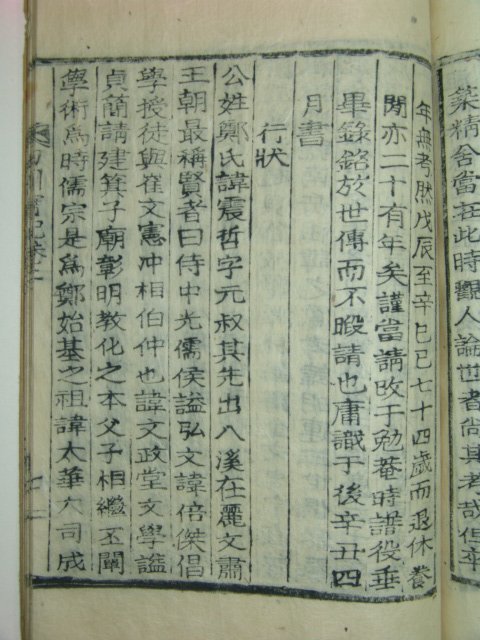 築精舍當在此時觀人論世者尚其考哉但卒
年無考然戊辰至辛巳已七十四歲而退休養
閒亦二十有年矣謹當請攷于勉菴時譜役垂
畢錄銘於世傳而不暇請也庸識于後辛丑四
月書
行狀
公姓鄭氏諱震哲字元叔其先出八溪在麗文肅
王朝最稱賢者曰侍中光儒侯謚弘文諱倍傑倡
學授徒與崔文憲冲相伯仲也諱文政堂文學謚
貞簡請建箕子廟彰明教化之本父子相繼丕闡
學術為時儒宗是為鄭始基之祖諱太華大司成
川實記卷二